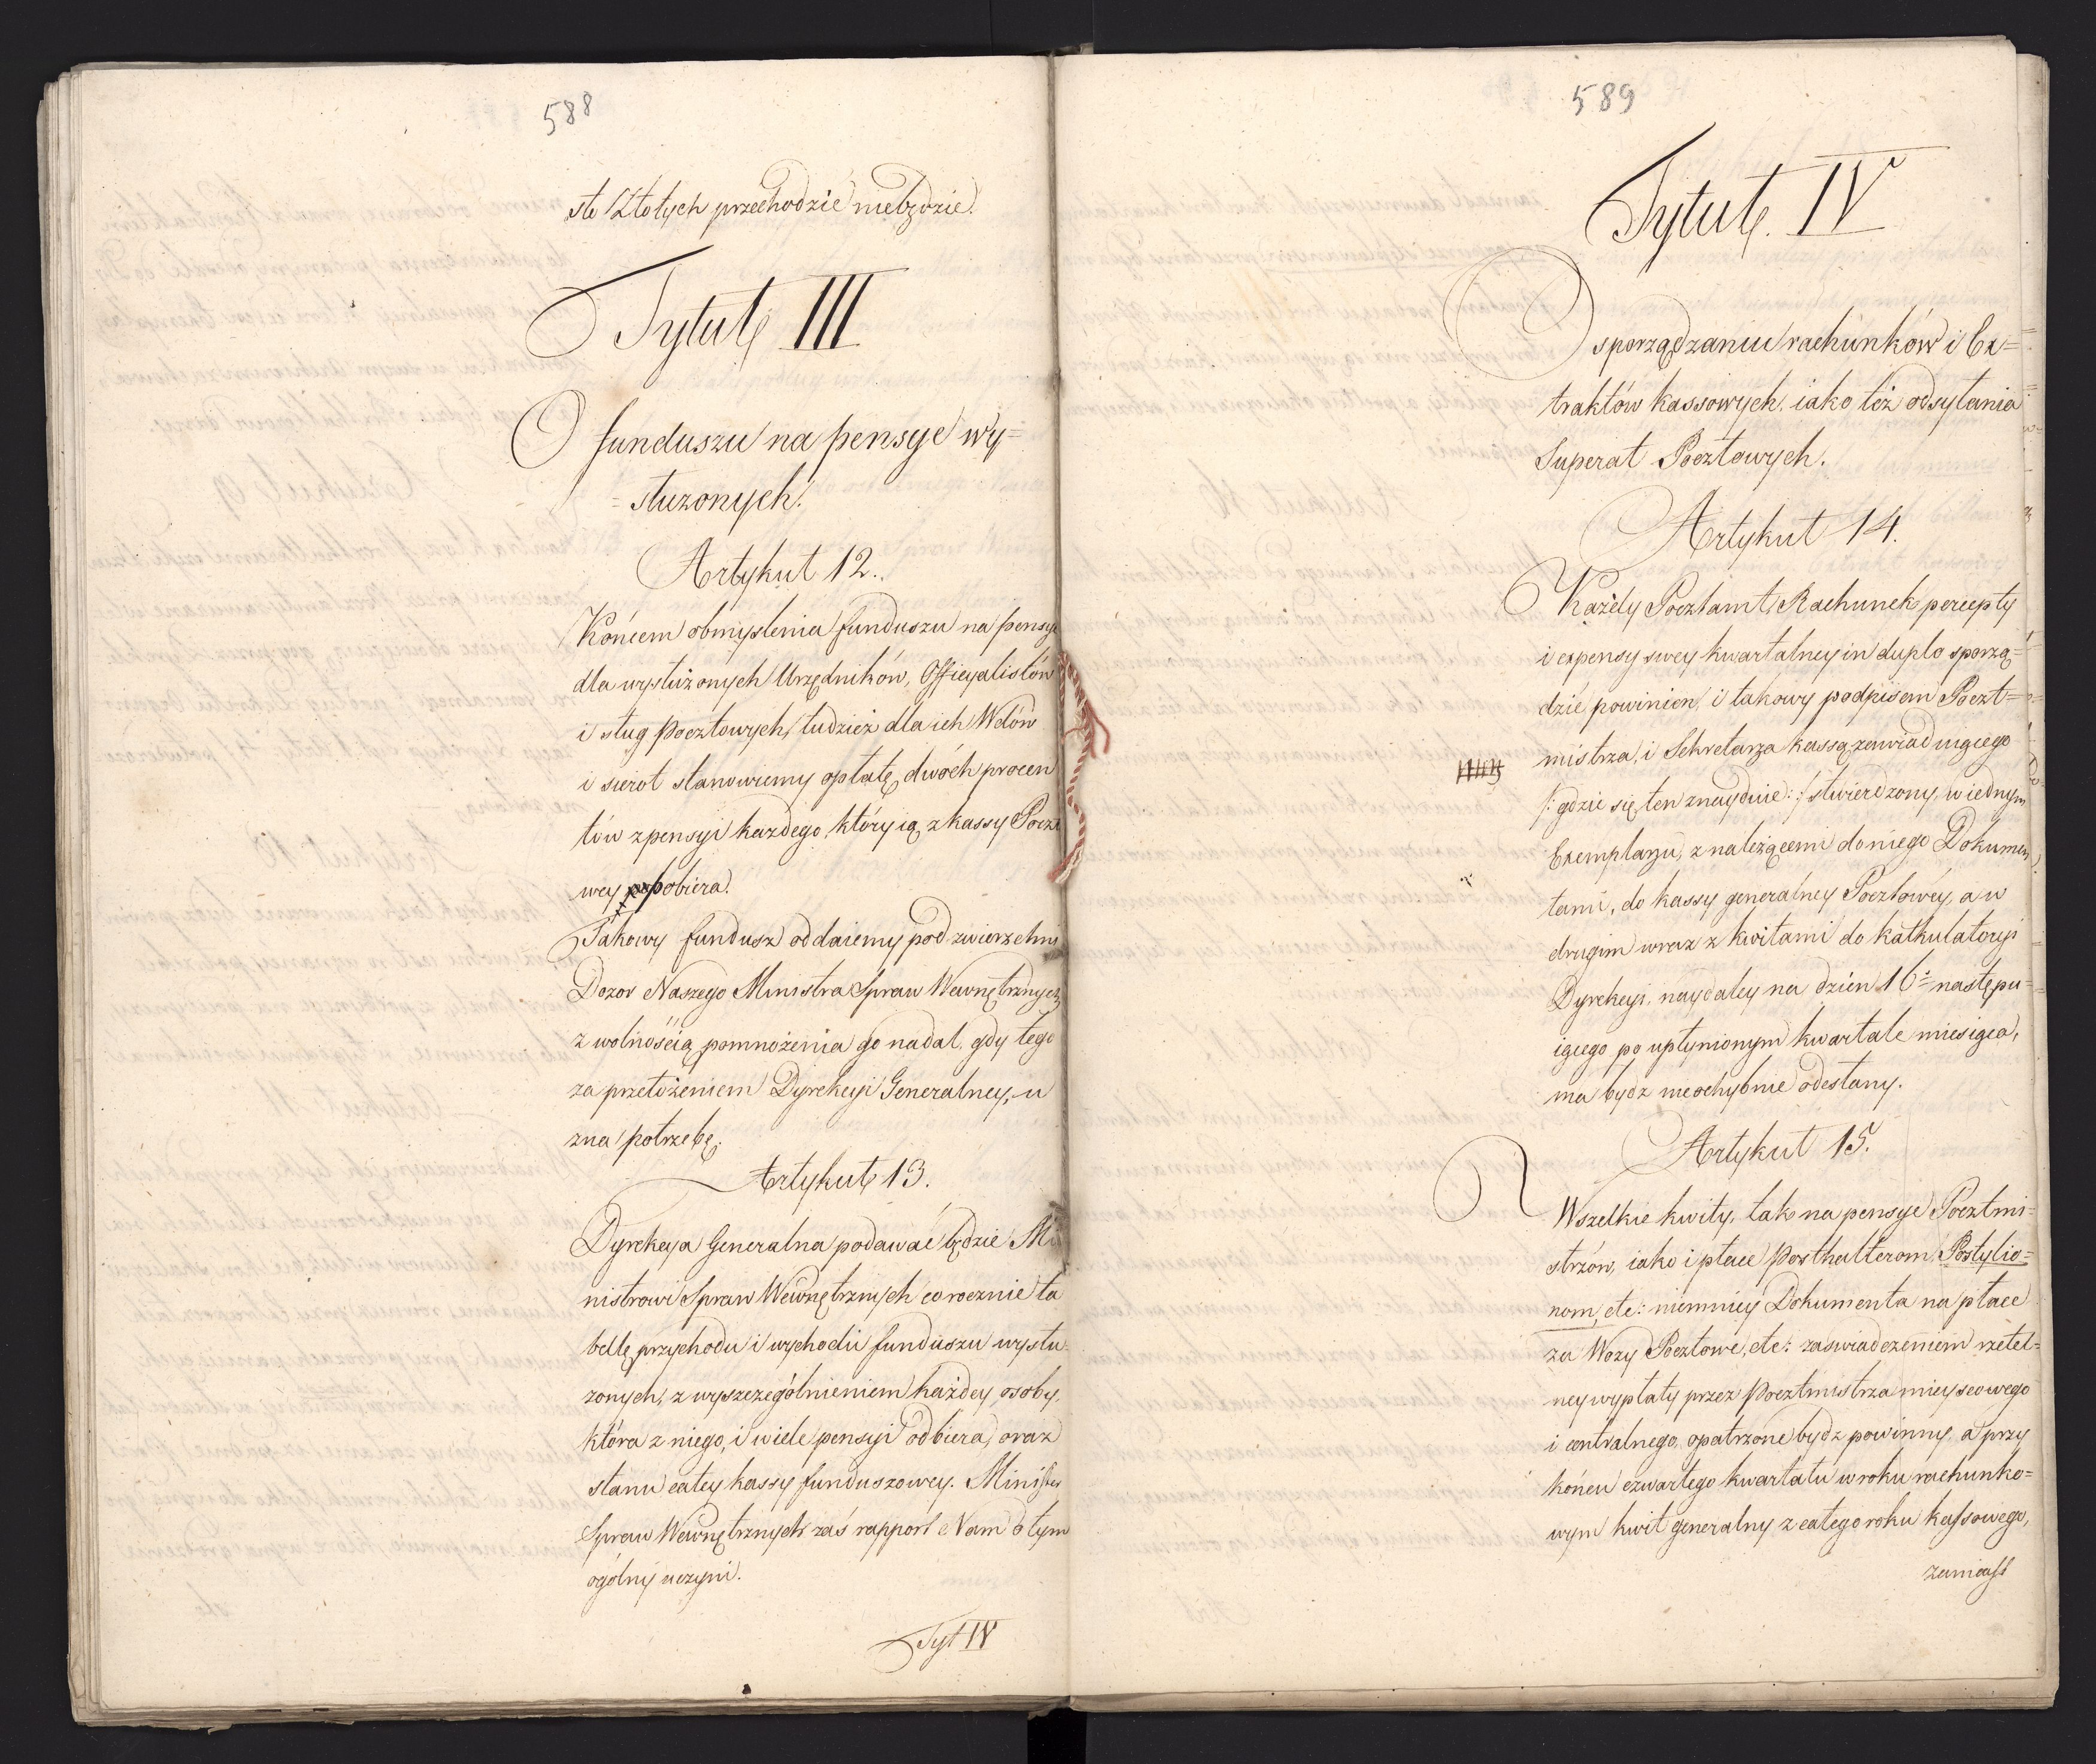 588
sto Złotych przechodzić niebędzie.
Tytuł III
O funduszu na pensye wy=
=służonych.
Artykuł 12.
Końcem obmyslenia funduszu na pensye
dla wysłużonych Urzędników, Officyalistów
i sług pocztowych, tudzież dla ich Wdów
i sierot stanowiemy opłatę dwóch procen
tów z pensyi każdego, który ią z kassy Poczto
wey pobiera.
Takowy fundusz oddaiemy pod zwierzchni
Dozor Naszego Ministra Spraw Wewnętrznych
z wolnością pomnożenia go nadal, gdy tego
za przełożeniem Dyrekcyi Generalney, u
zna potrzebę.
Artykuł 13.
Dyrekcya Generalna podawać będzie Mi
nistrowi Spraw Wewnętrznych corocznie ta
bellę przychodu i wychodu funduszu wysłu=
żonych, z wyszczególnieniem każdey osoby,
która z niego, i wiele pensyi odbiera, oraz
stanu całey kassy funduszowey. Minister
Spraw Wewnętrznych zaś rapport Nam o tym
ogólny uczyni.
Tyt IV
589
Tytuł IV
O sporządzaniu rachunków i Ex=
traktów kassowych, iako też odsyłania
Superat Pocztowych.
Artykuł 14.
Każdy Pocztamt Rachunek percepty
i expensy swey kwartalney in duplo sporzą=
dzić powinien, i takowy podpisem Poczt=
mistrza, i Sekretarza kassą zawiaduiącego
/: gdzie się ten znayduie :/ stwierdzony, w iednym
Exemplarzu, z należącemi do niego Dokumen
tami, do kassy generalney Pocztowéy, a w
drugim wraz z kwitami do Kalkulatoryi
Dyrekcyi, naydaley na dzień 16: następu=
iącego po upłynionym kwartale miesiąca,
ma bydz nieochybnie odesłany.
Artykuł 15.
Wszelkie kwity, tak na pensye Pocztmi=
strzów, iako i płace Posthalterom, Postylio=
nom, etc: niemniey Dokumenta na płace
za Wozy Pocztowe, etc: zaświadczeniem rzetel=
ney wypłaty przez Pocztmistrza mieyscowego
i contralnego, opatrzone bydz powinny, a przy
końcu czwartego kwartału w roku rachunko=
wym kwit generalny z całego roku kassowego,
zamiast